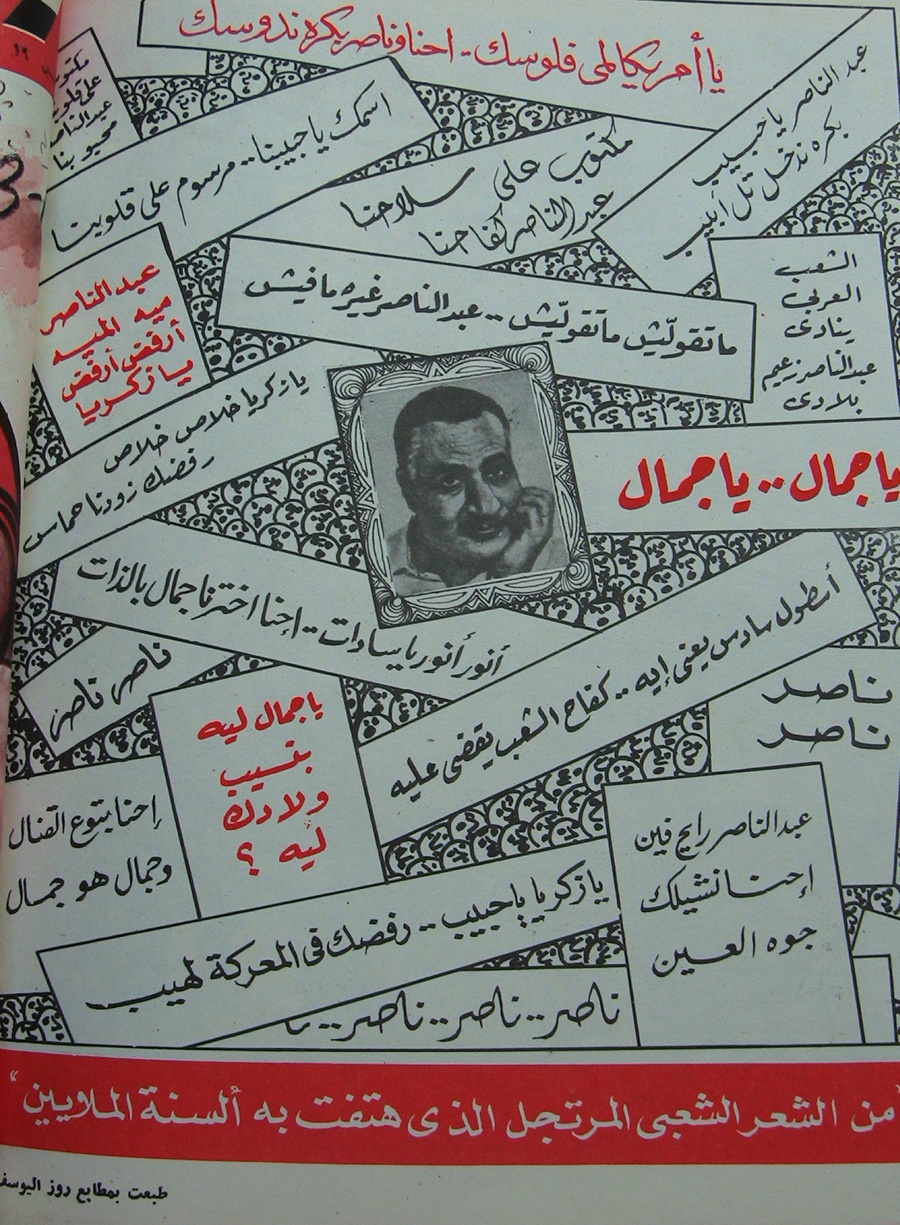 يا أمريكا لمى فلوسك .. احنا وناصر بكره ندوسك
١٩
مكتوب
على قلوبنا
عبدالناصر
محبوبنا
اسمك يا حبيبنا .. مرسوم على قلوبنا
مكتوب على سلاحنا
عبدالناصر كفاحنا
عبد الناصر يا حبيب
بكره ندخل تل أبيب
عبد الناصر
ميه الميه
أرفض أرفض
يا زكريا
ماتقوليش ماتقوليش .. عبد الناصر غيره مافيش
الشعب
العربى
ينادى
عبدالناصر زعيم
بلادى
يا زكريا خلاص خلاص
رفضك زودنا حماس
يا جمال .. يا جمال
أنور أنور يا سادات .. إحنا اخترنا جمال بالذات
أسطول سادس يعنى إيه .. كفاح الشعب يقضى عليه
ناصر ناصر
يا جمال ليه
بتسيب
ولادك
ليه ؟
ناصر
ناصر
إحنا بتوع القنال
وجمال هو جمال
عبد الناصر رايح فين
إحنا نشيلك
جوه العين
يا زكريا يا حبيب .. رفضك فى المعركة لهيب
ناصر .. ناصر .. ناصر .. نا
"من الشعر الشعبى المرتجل الذى هتفت به ألسنة الملايين"
طبعت بمطابع روز اليوسف